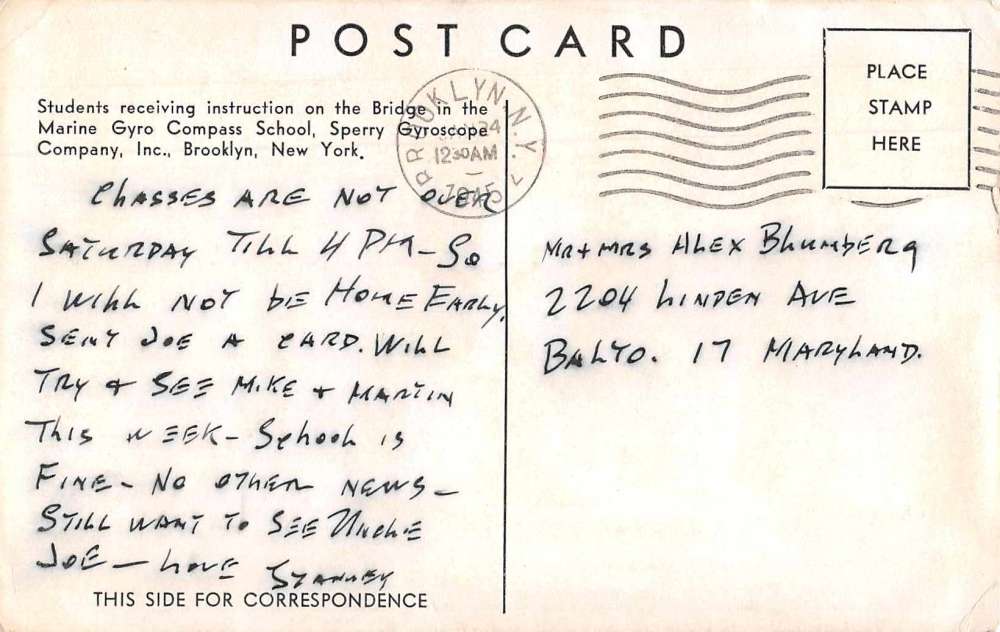 POST CARD
PLACE
STAMP
HERE
Students receiving instruction on the Bridge in the
Marine Gyro Compass School, Sperry Gyroscope
Company, Inc., Brooklyn, New York.
BROOKLYN, N.Y.
24
1230AM
1945
CLASSES ARE NOT OVER
SATURDAY TILL 4 PM - So
I WILL NOT BE HOME EARLY.
SENT JOE A CARD. WILL
TRY + SEE MIKE + MARTIN
THIS WEEK - School is
FINE - NO OTHER NEWS -
STILL WANT To SEE UNCLE
JOE - LOVE STANLEY
THIS SIDE FOR CORRESPONDENCE
MR + MRS ALEX BLUMBERG
2204 LINDEN AVE
BALTO. 17 MARYLAND.